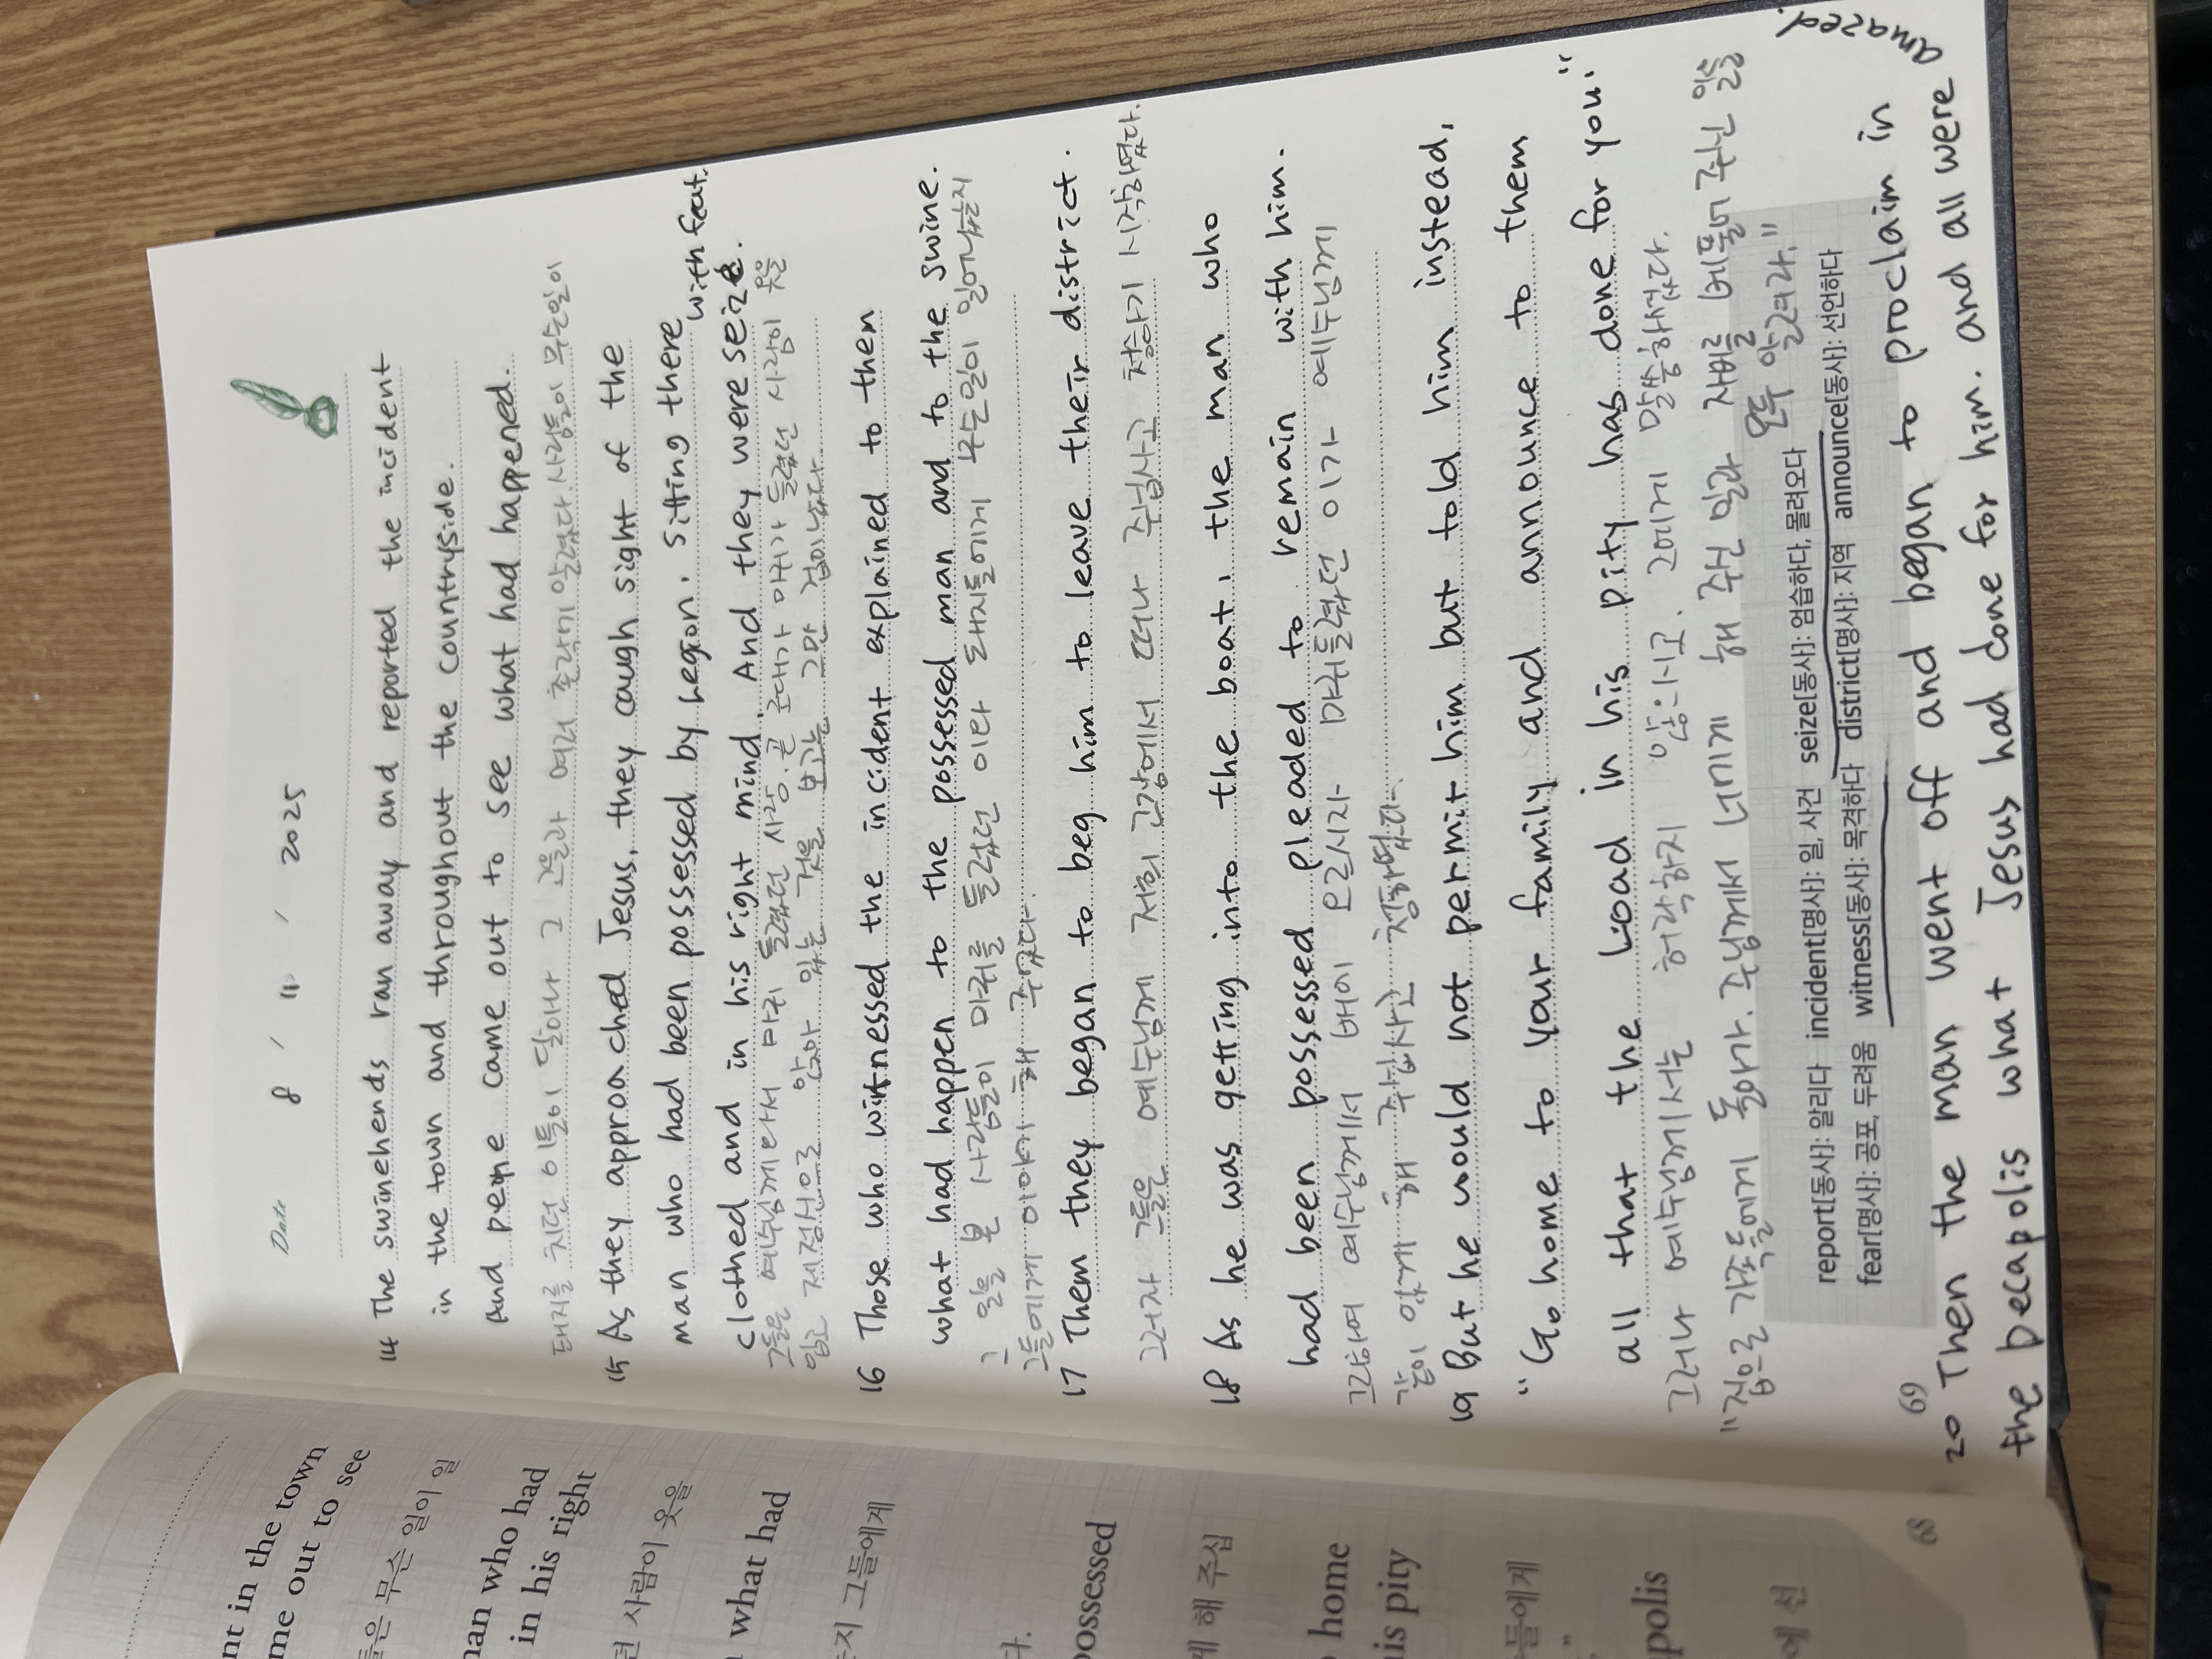 nt in the town
me out to see
들은 무슨 일이 일
man who had
in his right
련 사람이 옷을
what had
는지 그들에게
다.
possessed
게 해 주십
home
his pity
들에게
polis
에 선
68
Date 8 / 11 / 2025
14 The swinehends ran away and reported the incident
in the town and throughout the countryside.
And people came out to see what had happened.
돼지를 치던 이들이 달아나 그 고을과 여러 촌락에 알렸다. 사람들이 무슨일이
15 As they approached Jesus, they caugh sight of the
man who had been possessed by Legion, sitting there
clothed and in his right mind. And they were seize with fear.
그들은 예수님께 와서 마귀 들렸던 사람, 곧 군대가 마귀가 들렸던 사람이 옷을
입고 제정신으로 앉아 있는 것을 보고는 그만 겁이 났다.
16 Those who witnessed the incident explained to then
what had happen to the possessed man and to the swine.
그 일을 본 사람들이 마귀를 들렸던 이와 돼지들에게 무슨일이 일어났는지
그들에게 이야기 해 주었다.
17 Them they began to beg him to leave their district.
그러자 그들은 예수님께 저희 고장에서 떠나 주십사고 청하기 시작하였다.
18 As he was getting into the boat, the man who
had been possessed pleaded to remain with him.
그리하여 예수님께서 배에 오르시자 마귀들렸던 이가 예수님께
같이 있게 해 주십사고 청하였다.
19 But he would not permit him but told him instead,
"Go home to your family and announce to them
all that the Load in his pity has done for you."
그러나 예수님께서는 허락하지 않으시고, 그에게 말씀하셨다.
"집으로 가족들에게 돌아가, 주님께서 너에게 해 주신 일과 자비를 베풀어 주신 일을
모두 알려라."
report[동사]: 알리다 incident[명사]: 일, 사건 seize[동사]: 엄습하다, 몰려오다
fear[명사]: 공포, 두려움 witness[동사]: 목격하다 district[명사]: 지역 announce[동사]: 선언하다
69
20 Then the man went off and began to proclaim in
the Decapolis what Jesus had done for him. and all were amazed.